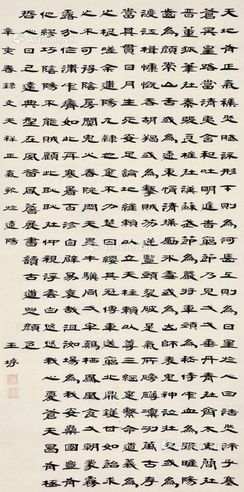 天地有正氣雜然賦流形下則為河嶽上則為日星於人曰浩然沛乎塞
蒼冥皇路當清夷含和吐明庭時窮節乃見一一垂丹青在齊太史簡在
晉董狐筆在秦張良椎在漢蘇武節為嚴將軍頭為嵇侍中血為張睢陽
齒為顏常山舌或為遼東帽清操厲冰雪或為出師表鬼神泣壯烈或為
渡江楫慷慨吞胡羯或為擊賊笏逆豎頭破裂是氣所磅礴凜烈萬古存
當其貫日月生死安足論地維賴以立天柱賴以尊三綱實係命道義為
之根嗟予遘陽九隸也實不力楚囚纓其冠傳車送窮北鼎鑊甘如飴求
之不可得陰房闃鬼火春院閟天黑牛驥同一皂雞棲鳳凰食一朝蒙霧
露分作溝中瘠如此再寒暑百沴自辟易嗟哉沮洳場為我安樂國豈有
他繆巧陰陽不能賊顧此耿耿在仰視浮雲白悠悠我心悲蒼天曷有極
哲人日已遠典型在夙昔風簷展書讀古道照顏色
辛亥春錄文天祥正氣歌遼陽王